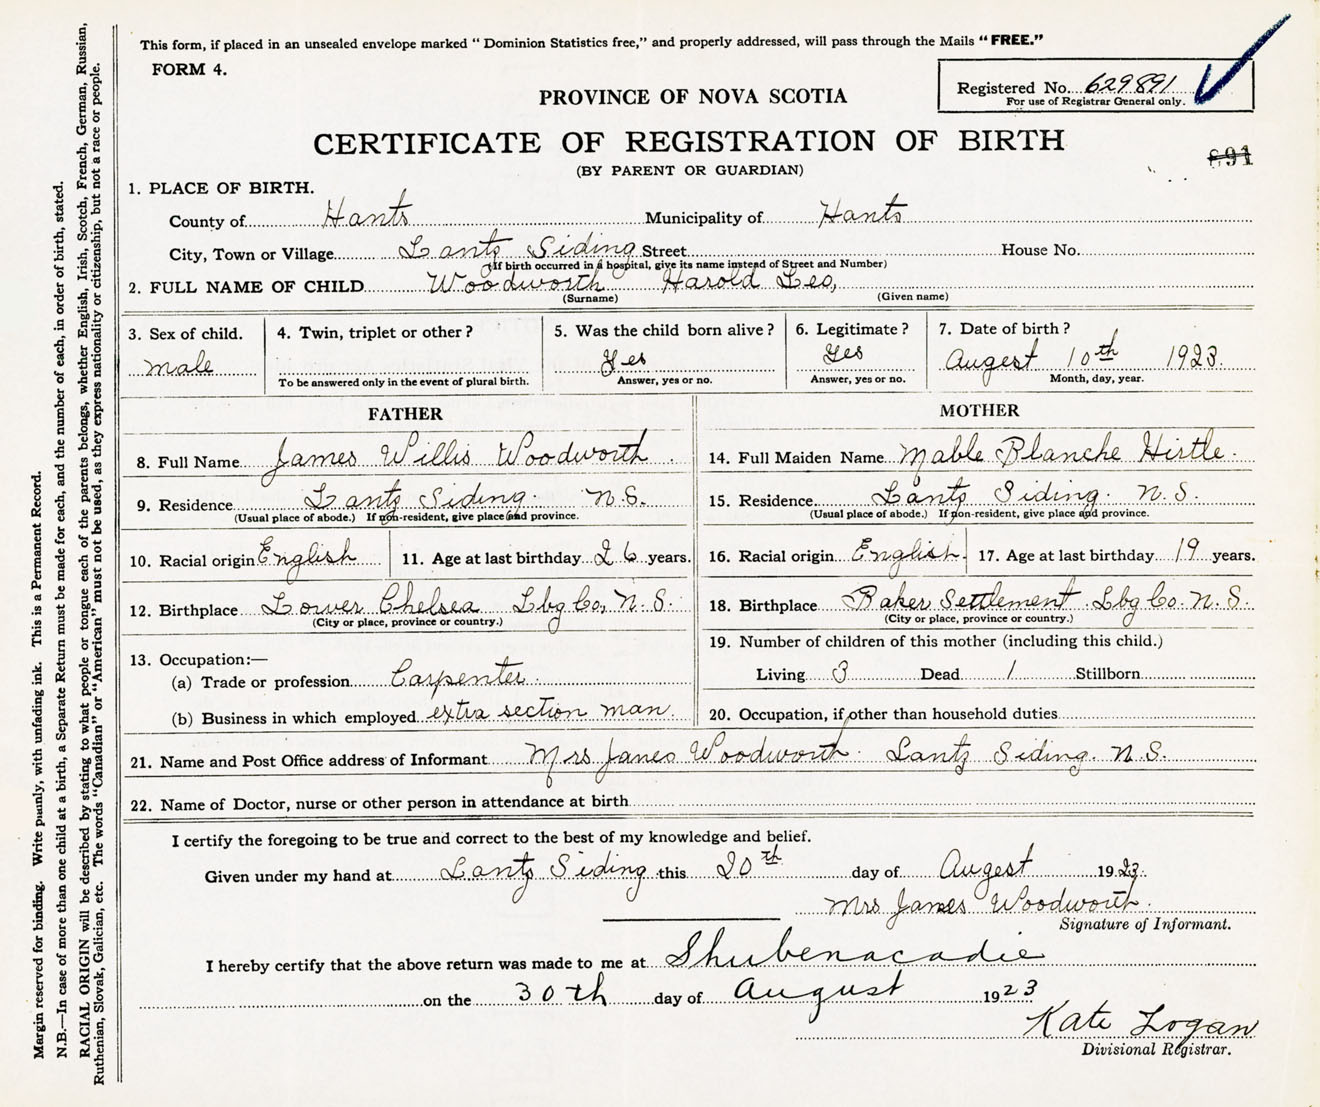 This form, if placed in an unsealed envelope marked " Dominion Statistics free," and properly addressed, will pass through the Mails " FREE."
FORM 4.
Registered No. 629891
For use of Registrar General only.
PROVINCE OF NOVA SCOTIA
CERTIFICATE OF REGISTRATION OF BIRTH
691
(BY PARENT OR GUARDIAN)
1. PLACE OF BIRTH.
County of Hants Municipality of Hants
City, Town or Village Lantz Siding Street House No.
(If birth occurred in a hospital, give its name instead of Street and Number)
2. FULL NAME OF CHILD Woodworth Harold Leo,
(Surname) (Given name)
3. Sex of child. 4. Twin, triplet or other ? 5. Was the child born alive ? 6. Legitimate ? 7. Date of birth ?
male Yes Yes Augest 10th 1923.
To be answered only in the event of plural birth. Answer, yes or no. Answer, yes or no. Month, day, year.
FATHER MOTHER
8. Full Name James Willis Woodworth 14. Full Maiden Name Mable Blanche Hirtle.
9. Residence Lantz Siding. N.S. 15. Residence Lantz Siding. N.S.
(Usual place of abode.) If non-resident, give place and province. (Usual place of abode.) If non-resident, give place and province.
10. Racial origin English 11. Age at last birthday 26 years. 16. Racial origin English. 17. Age at last birthday 19 years.
12. Birthplace Lower Chelsea Lbg Co, N.S. 18. Birthplace Baker Settlement. Lbg Co. N.S.
(City or place, province or country.) (City or place, province or country.)
13. Occupation:— 19. Number of children of this mother (including this child.)
(a) Trade or profession Carpenter. Living 3 Dead 1 Stillborn
(b) Business in which employed extra section man. 20. Occupation, if other than household duties
21. Name and Post Office address of Informant Mrs James Woodworth. Lantz Siding. N.S.
22. Name of Doctor, nurse or other person in attendance at birth
I certify the foregoing to be true and correct to the best of my knowledge and belief.
Given under my hand at Lantz Siding this 20th day of Augest 1923.
Mrs James Woodworth.
Signature of Informant.
I hereby certify that the above return was made to me at Shubenacadie
on the 30th day of August 1923
Kate Logan
Divisional Registrar.
Margin reserved for binding. Write plainly, with unfading ink. This is a Permanent Record.
N.B.—In case of more than one child at a birth, a Separate Return must be made for each, and the number of each, in order of birth, stated.
RACIAL ORIGIN will be described by stating to what people or tongue each of the parents belongs, whether English, Irish, Scotch, French, German, Russian,
Ruthenian, Slovak, Galician, etc. The words "Canadian" or "American" must not be used, as they express nationality or citizenship, but not a race or people.